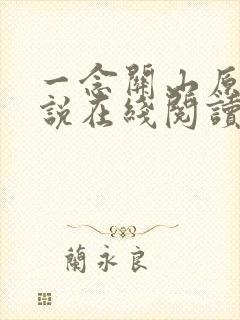 一念關山原
說在綫閱讀
蘭永良